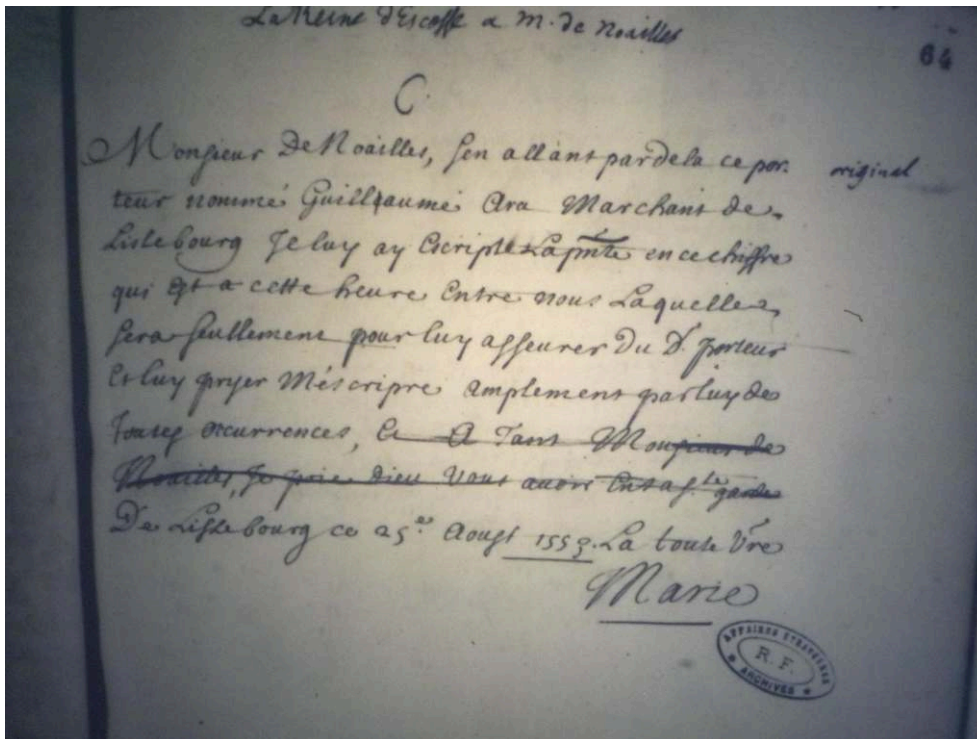 La Reine d'Escosse a M. de Noailles
64
C.
Monsieur De Noailles, sen allant par dela ce por- original
teur nommé Guillaume Ara Marchant de
Lislebourg Je luy ay Escripte La pnte en ce chiffre
qui Est a cette heure Entre nous Laquelle
sera seullement pour luy asseurer Du d. porteur
Et luy pryer Mescripre amplement par luy de
toutes occurrences, Et A Tant Monsieur de
Noailles, Je prie dieu Vous avoir En sa ste garde
De Lislebourg ce 25e Aoust 1553. La toute Vre
Marie
AFFAIRES ETRANGERES
R. F.
ARCHIVES